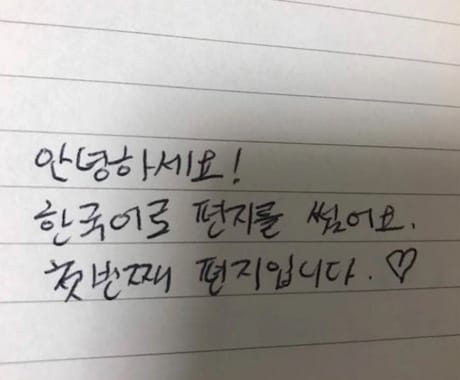 안녕하세요!
한국어로 편지를 썼어요.
첫번째 편지입니다. ♡